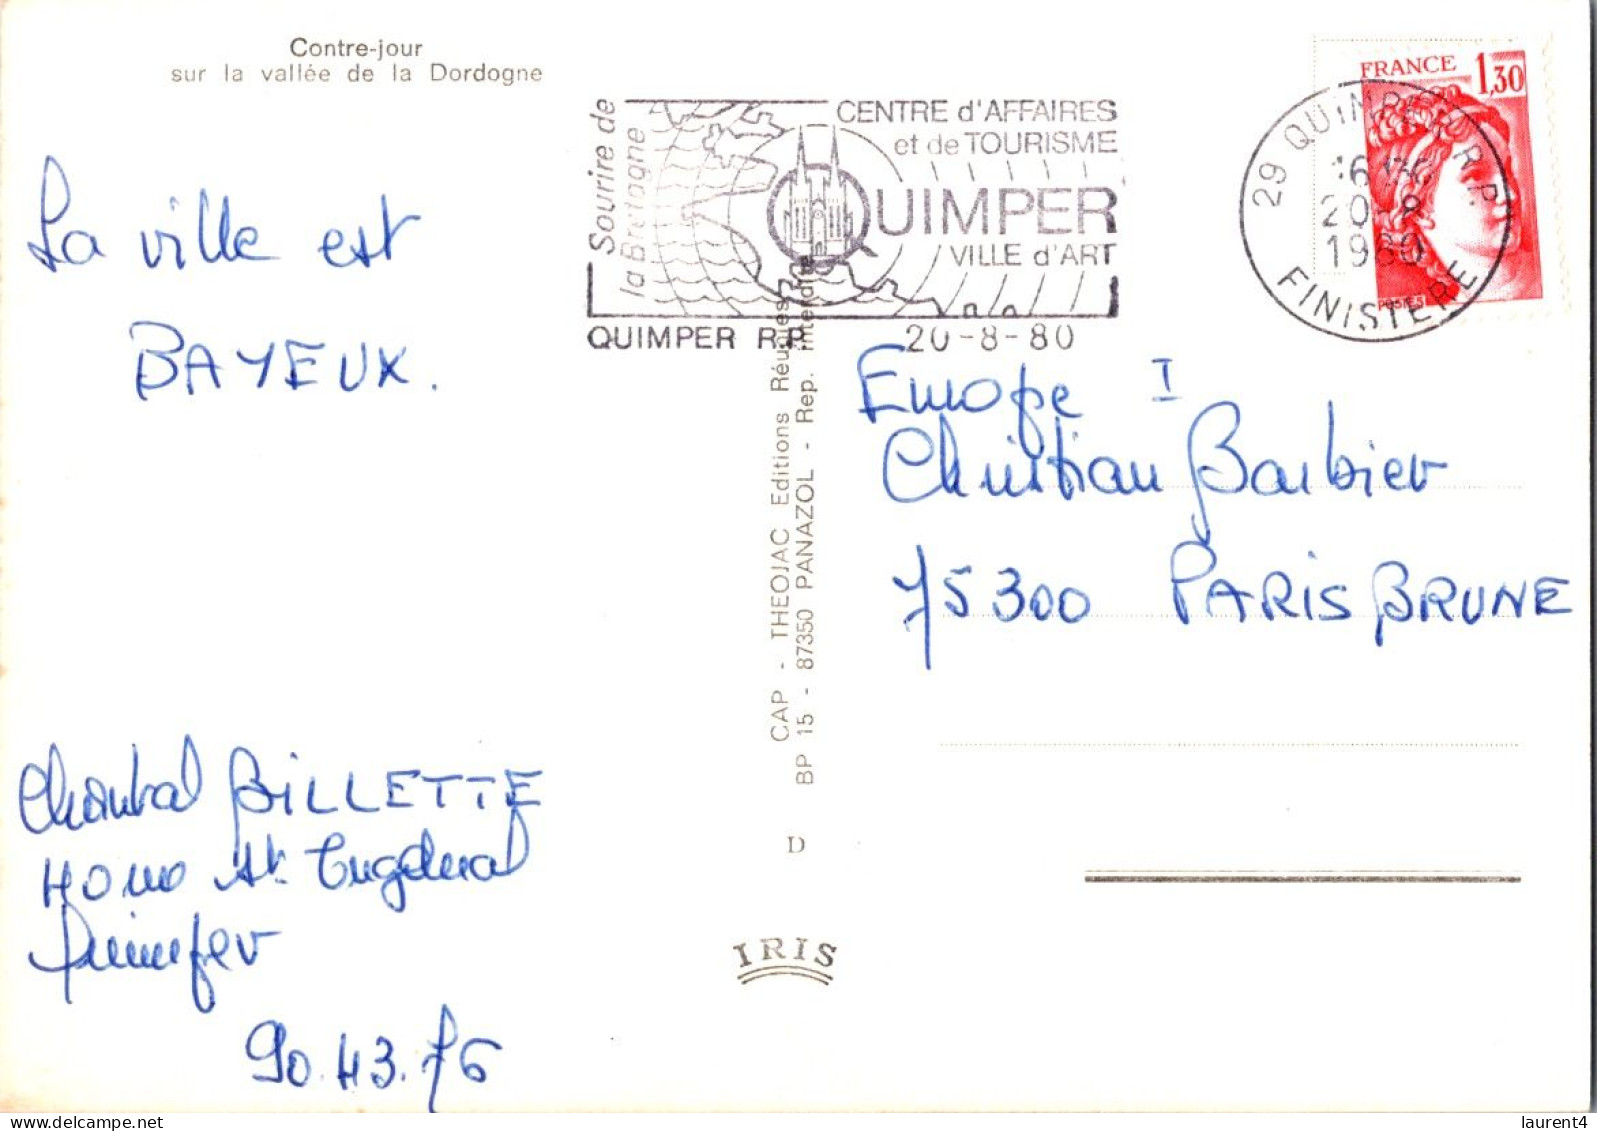 Contre-jour
sur la vallée de la Dordogne
La ville est
BAYEUX.
Chantal BILLETTE
St. Tugdual
Quimper
90.43.76
Sourire de
la Bretagne
CENTRE d'AFFAIRES
et de TOURISME
QUIMPER
VILLE d'ART
QUIMPER R.P.
20-8-80
FRANCE 1,30
POSTES
29 QUIMPER R.P.
20-8
1980
FINISTERE
CAP - THEOJAC Editions Réunies
BP 15 - 87350 PANAZOL - Rep. interdite
D
IRIS
Europe I
Christian Barbier
75300 PARIS BRUNE
laurent4